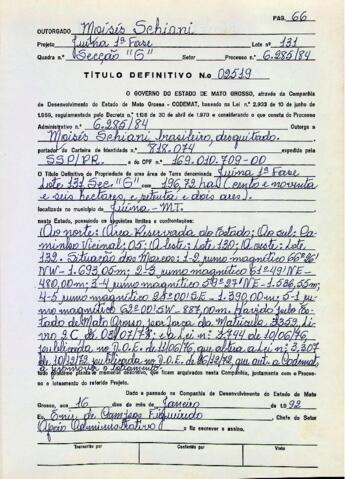 PAG. 66
OUTORGADO Moisés Schiani
Projeto Juína 1ª Fase Lote nº 131
Quadra n.º Secção "G" Setor Processo n.º 6.285/84
TÍTULO DEFINITIVO N.o 02519
O GOVERNO DO ESTADO DE MATO GROSSO, através da Companhia
de Desenvolvimento do Estado de Mato Grosso - CODEMAT, baseado na Lei n.º 2.933 de 10 de junho de
1.969, regulamentada pelo Decreto n.º 1.128 de 30 de abril de 1970 e considerando o que consta do Processo
Administrativo n.º 6.285/84 Outorga a
Moisés Schiani brasileiro, desquitado.
portador da Carteira de Identidade n.º 818.074 expedida pela
SSP/PR. e do CPF n.º 169.010.709-00
O Título Definitivo de Propriedade de uma área de Terra denominada Juína 1ª Fase
Lote 131 Sec "G" com 196,72 ha (cento e noventa
e seis hectares, e setenta e dois ares).
localizada no município de Juína - MT.
neste Estado, possuindo os seguintes limites e confrontações:
Ao norte: Área Reservada do Estado; Ao sul: Ca-
minho Vicinal, 05; A leste: Lote, 130; A oeste: Lote,
132. Situação dos Marcos: 1-2 rumo magnético 66º26'
NW-1.693,05m; 2-3 rumo magnético 61º49' NE-
480,00m; 3-4 rumo magnético 59º27' NE-1.536,55m;
4-5 rumo magnético 28º00' SE-1.390,00m; 5-1 ru-
mo magnético 62º00' SW-887,00m. Havido pelo Es-
tado de Mato Grosso, por força da Matícula 3353, Li-
vro 2 C. de 03/07/78; e a Lei nº 3.744 de 10/06/76,
publicada no D.O.E. de 14/06/76, que altera a Lei nº 3.307
de 10/12/72 publicada no D.O.E. de
a promover o loteamento.
tudo consoante planta e memorial descritivo, que ficam arquivados nesta Companhia, juntamente com o Proces-
so e loteamento do referido Projeto.
Dado e passado na Companhia de Desenvolvimento do Estado de Mato
Grosso, aos 16 dias do mês de Janeiro de 1.992
Eu, Enir de Campos Figueiredo Chefe do Setor
Apoio Administrativo o fiz escrever e assino.
Transcrito por
Conferido por
Visto